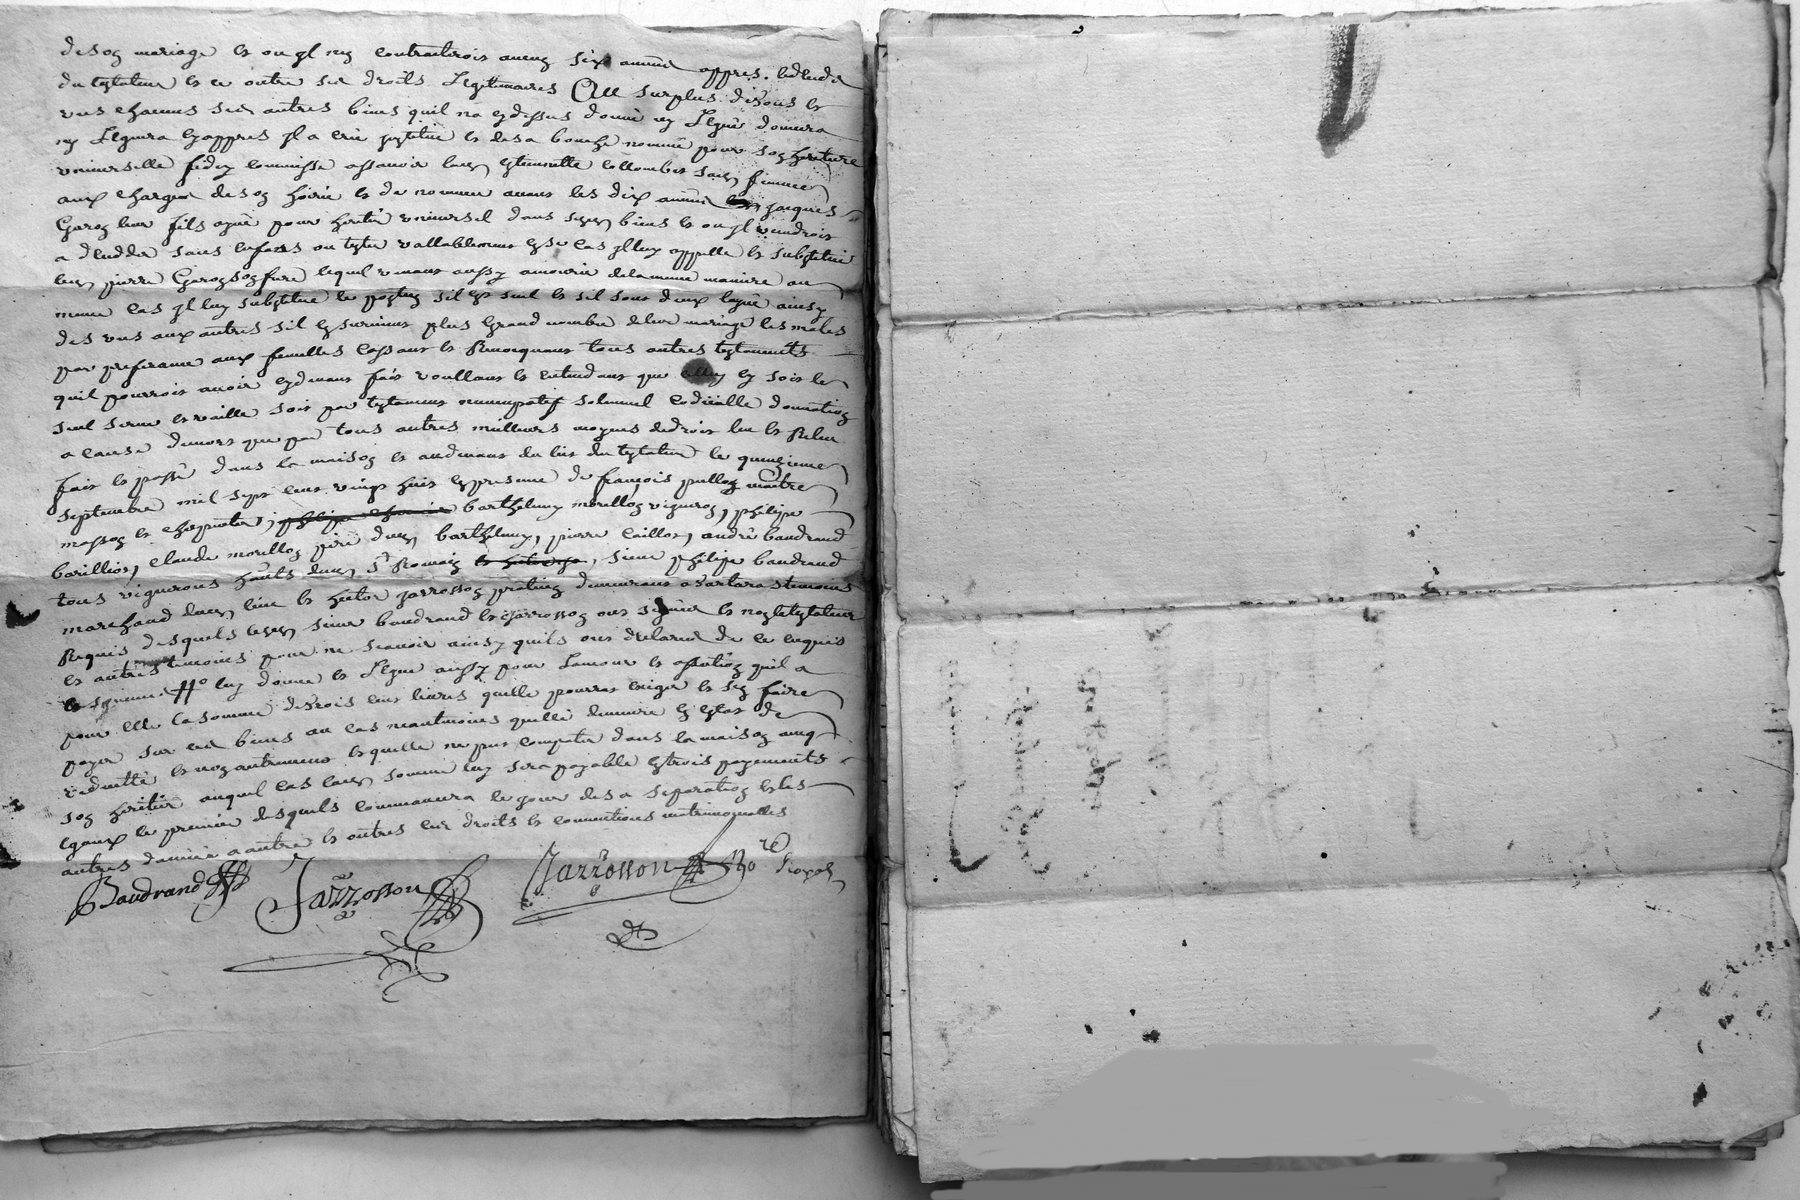 de son mariage et ou il n'en contracteroit aucun six années appres le deces
du testateur et ce outre ses droits Legitimaires Au surplus de tous et
uns chacuns ses autres biens quil na cydessus donné ny Legué donnera
ny Leguera cyappres il a créé institué et de sa bouche nommé pour son heritiere
universelle fideycommisse assavoir lad estiennette collombet sad femme
aux charges de son hoirie et de nommer avant les dix années jacques
Garon leur fils ayné pour heritier universel dans sesd biens et ou il viendroit
a deceder sans enfants ou tester vallablement en ce cas il luy appelle et substitue
led pierre Garon son frere lequel venant aussy a mourir de la meme maniere au
meme cas il luy substitue le postume sil est seul et sil sont deux layné ainsy
des uns aux autres sil en survient plus Grand nombre de leur mariage les males
par preferance aux femelles cassant et Revocquant tous autres testaments
quil pourroit avoir cydevant fait voullant et entendant que celluy cy soit le
seul serve et vaille soit par testament nuncupatif solemnel codicille donnation
a cause de mort que par tous autres meilleurs moyens de droit leu et Releu
fait et passé dans la maison et audevant du lit du testateur le quinzieme
septembre mil sept cent vingt huit en presence de françois pullon maitre
masson et charpentier, barthelemy morellon vigneron, philipe
barillion, claude morellon pere dud barthelemy, pierre caillot, andré baudrand
tous vignerons habts dud St Romain, sieur philipe baudrand
marchand dud lieu et hector jarrosson praticien demeurant a tartara temoins
Requis desquels lesd sieur baudrand et jarrosson ont signé et non le testateur
et autres temoins pour ne scavoir ainsy quils ont declaré de ce enquis
et sommé luy donne et Legue aussy pour Lamour et affection quil a
pour elle la somme de trois cent livres quelle pourra exiger et se faire
payer sur ses biens au cas neantmoins quelle demeure en estat de
viduitté et non autrement et quelle ne put compatir dans la maison avec
son heritier auquel cas lad somme luy sera payable en trois payements
egaux le premier desquels commancera le jour de sa separation et les
autres dannée a autre et outres ses droits et conventions matrimonialles
Baudrand Jarrosson Jarrosson no re Royal